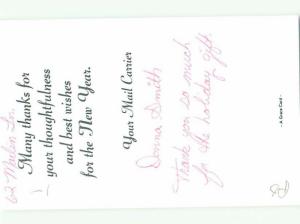 Many thanks for
your thoughtfulness
and best wishes
for the New Year.
Your Mail Carrier
Donna Smith
Thank you so much
for the holiday gift.
- A Grace Card -
62
Ln.